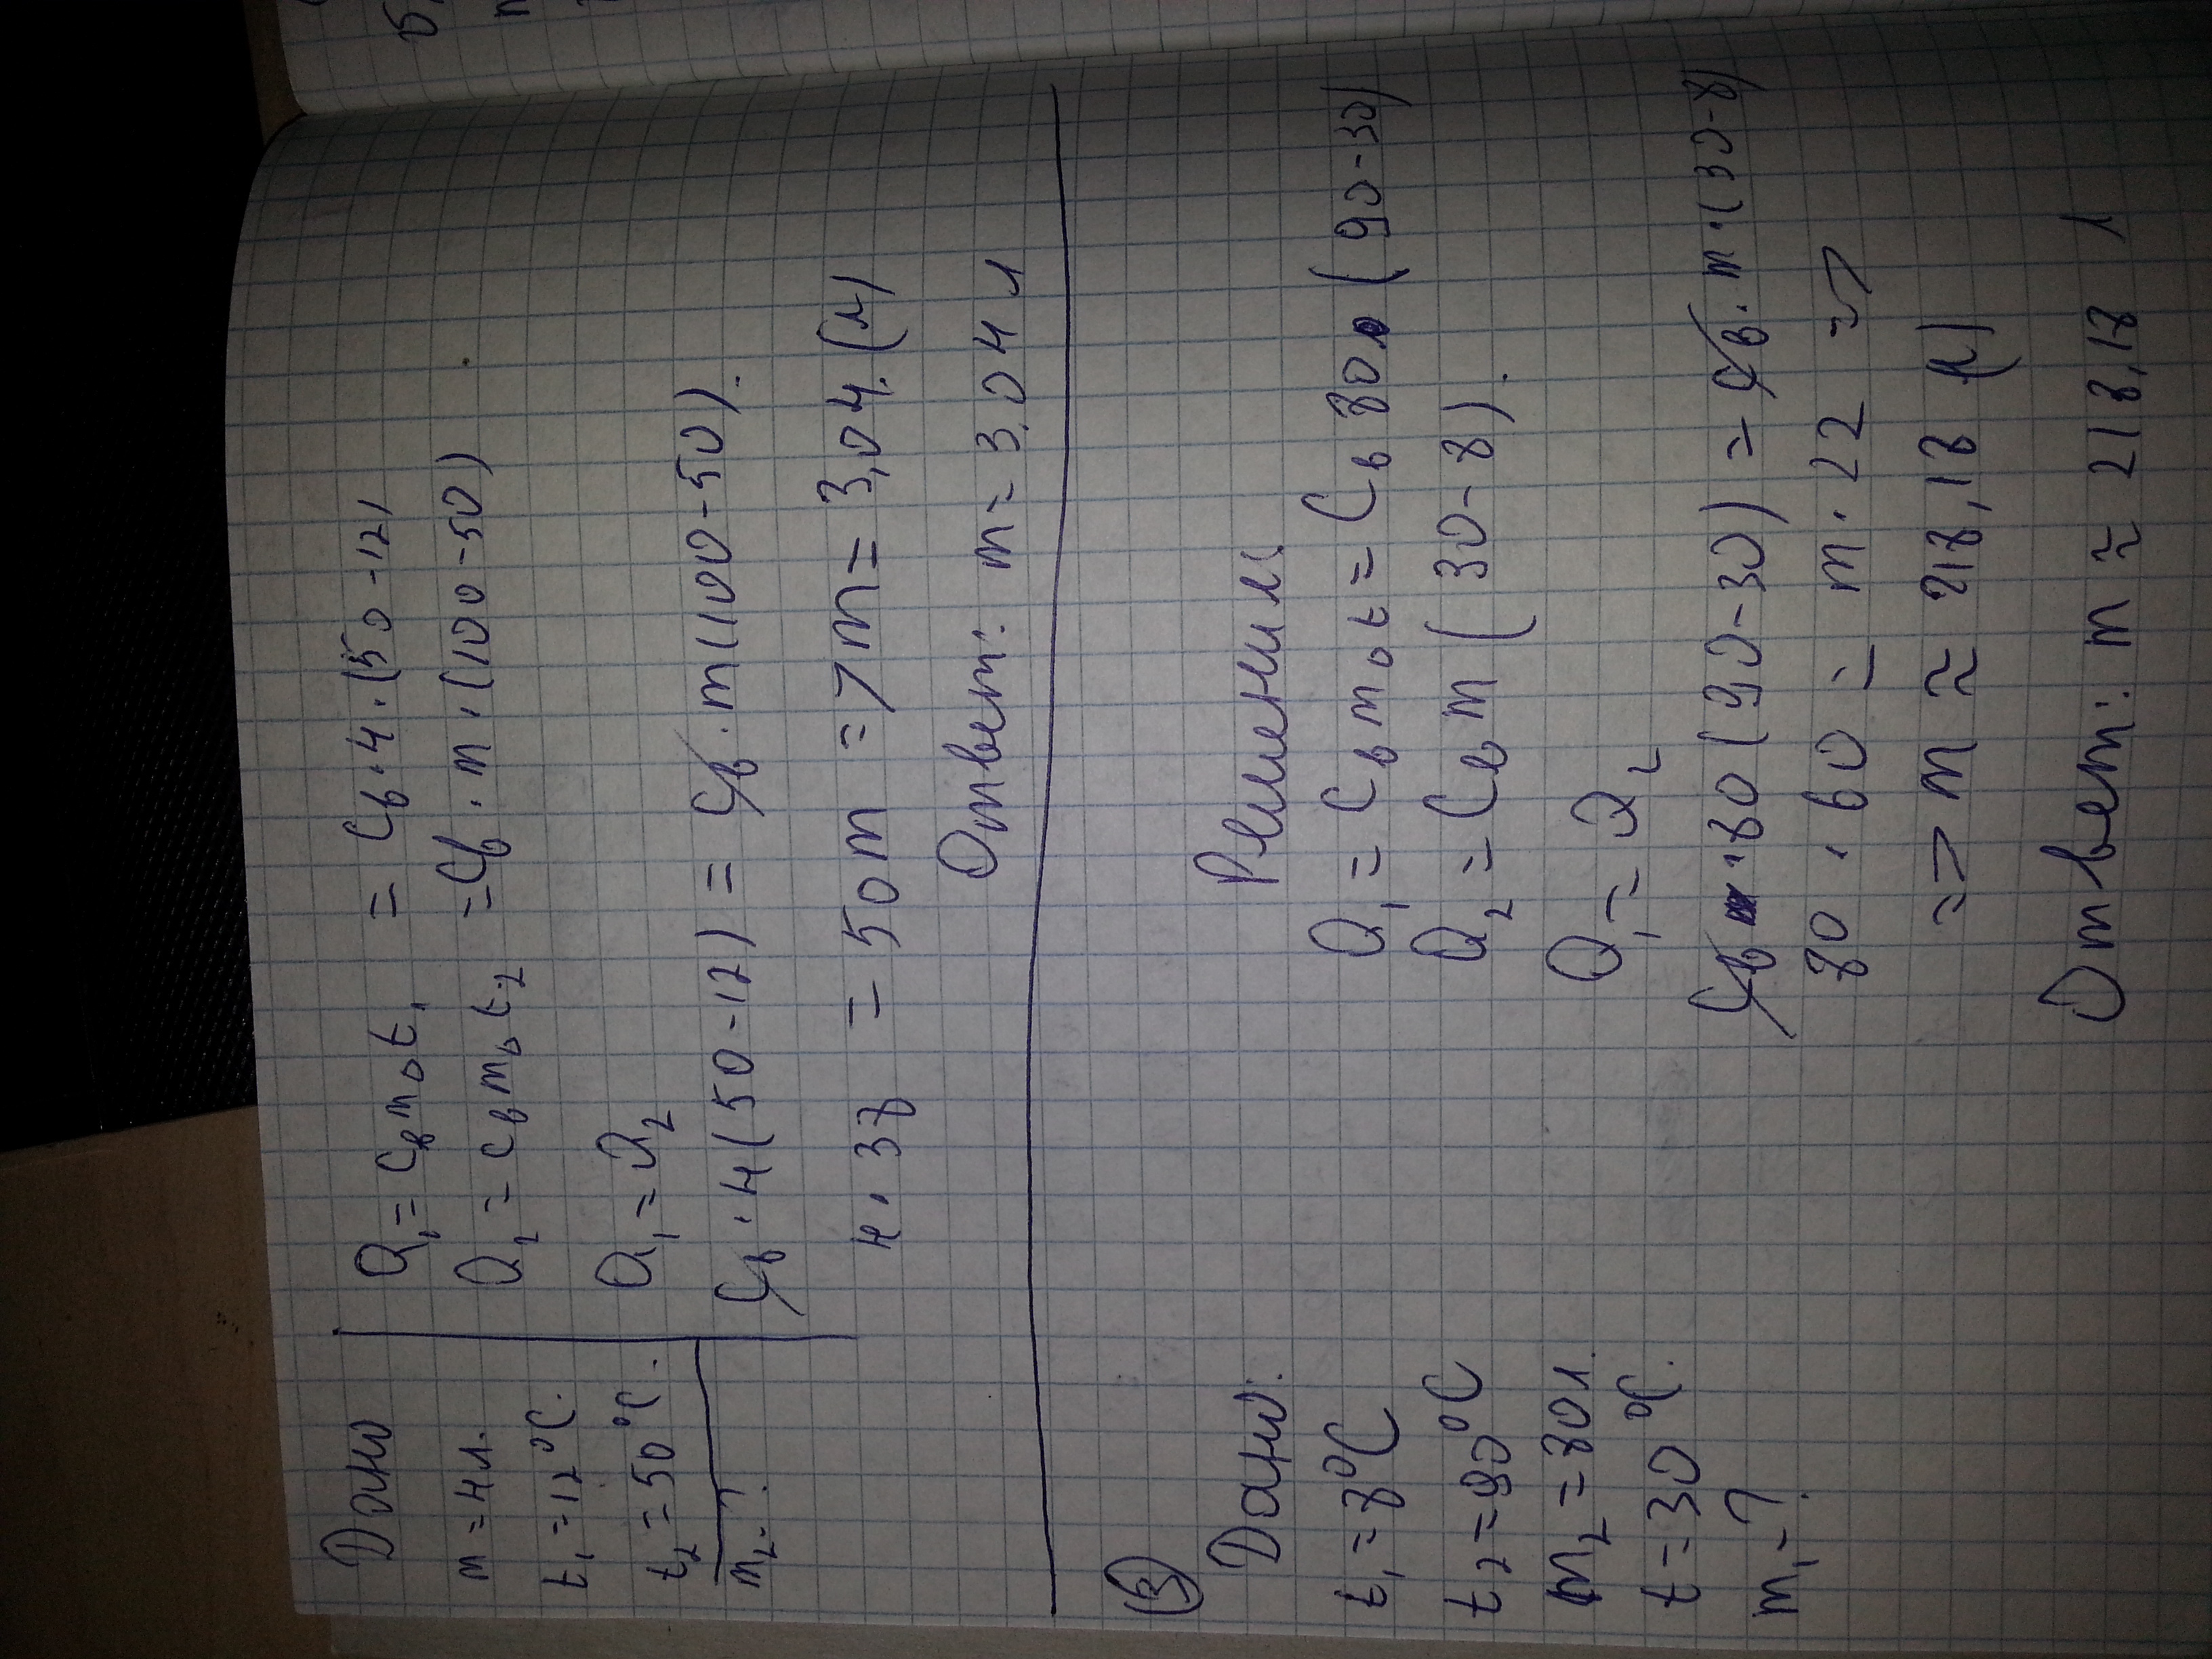 Дано
m = 4 л.
t₁ = 12 °C.
t₂ = 50 °C.
m₂ - ?
Q₁ = cвm△t₁ = cв·4·(50-12)
Q₂ = cвm△t₂ = cв·m·(100-50)
Q₁ = Q₂
cв·4(50-12) = cв·m(100-50).
4·38 = 50m => m = 3,04.(л)
Ответ: m = 3,04 л
③
Дано:
t₁ = 8°C
t₂ = 90°C
m₂ = 80л.
t = 30 °C.
m₁ - ?
Решение
Q₁ = Cвm△t = Cв 80 (90-30)
Q₂ = Cвm (30-8).
Q₁ = Q₂
Cв·80 (90-30) = Cв·m·(30-8)
80·60 = m·22 =>
=> m ≈ 218,18 (л)
Ответ: m ≈ 218,18 л